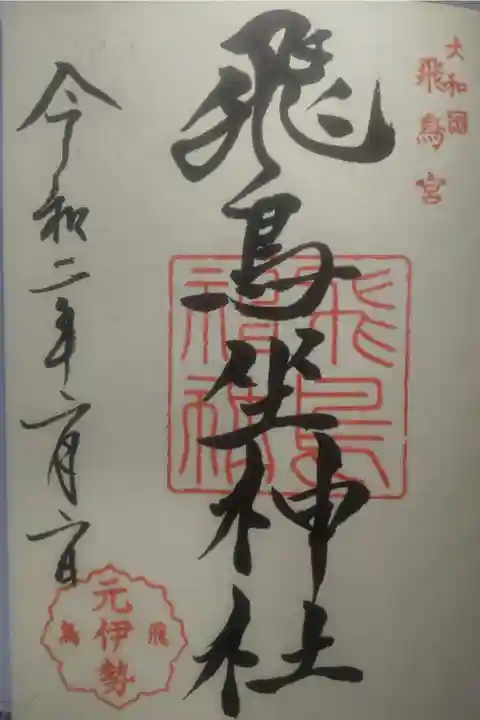 大和國
飛鳥宮
飛鳥坐神社
飛鳥
神社
令和二年六月六日
元伊勢
飛鳥